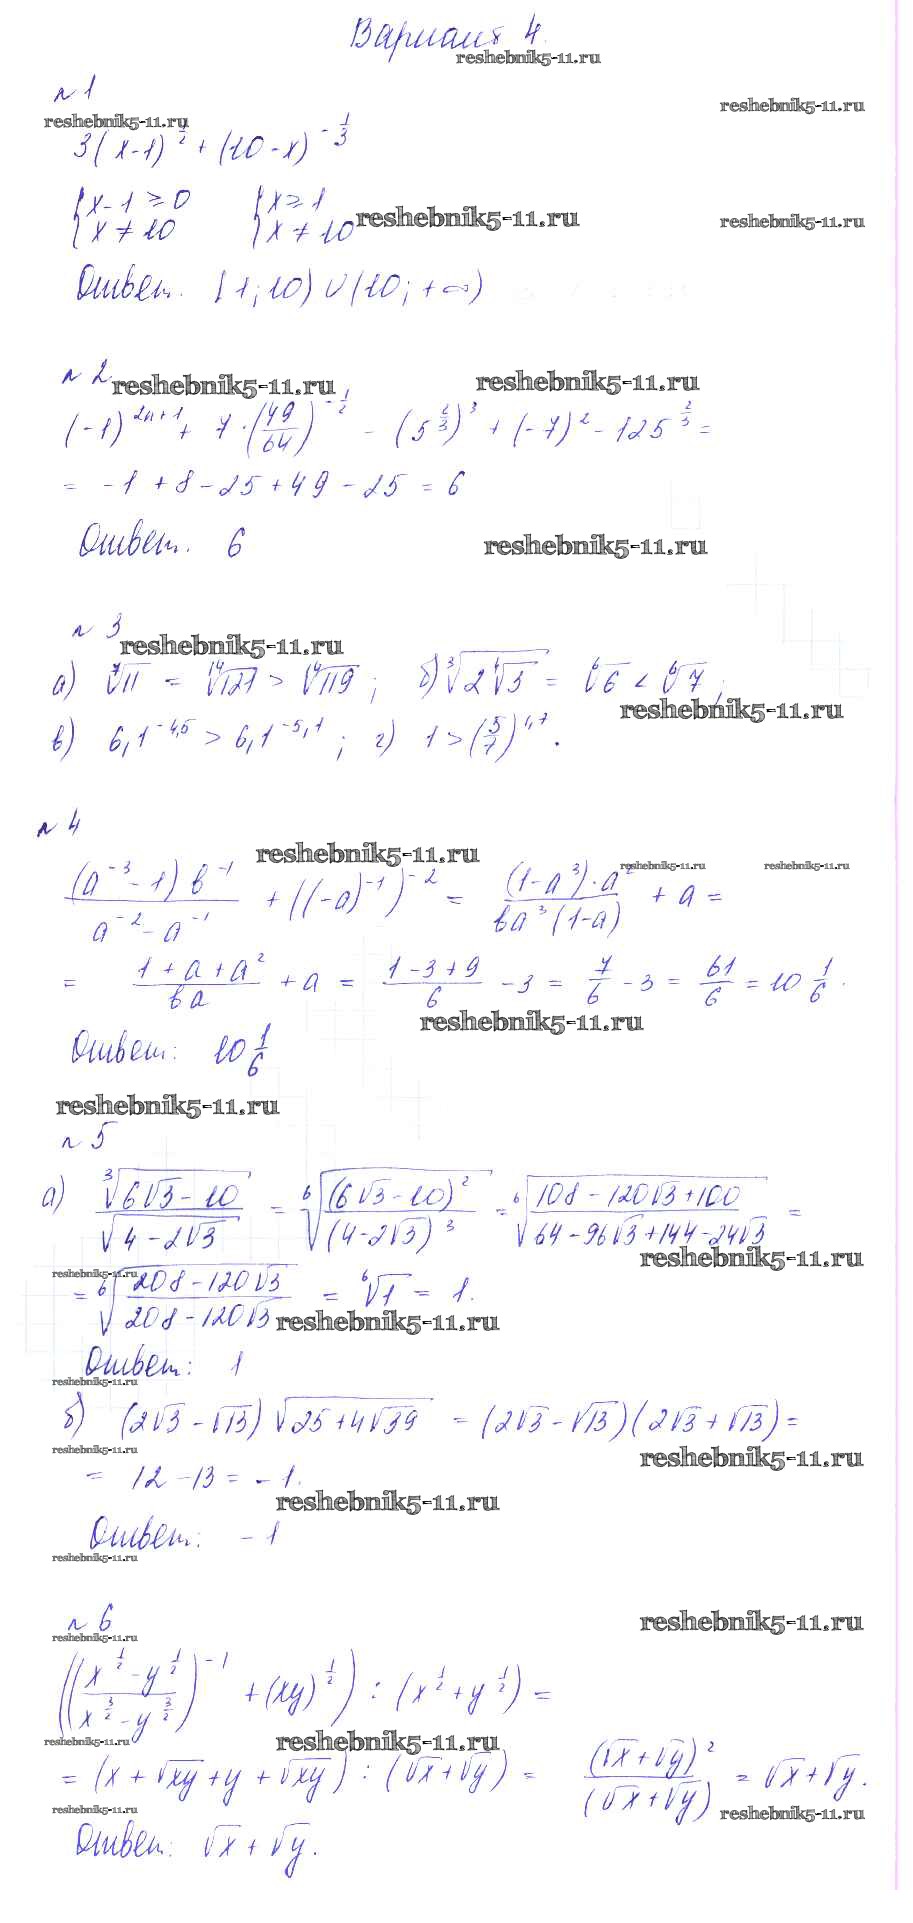 Вариант 4.
reshebnik5-11.ru
№ 1
reshebnik5-11.ru reshebnik5-11.ru
3(x-1)^{1/2} + (10-x)^{-1/3}
{x-1 ≥ 0 {x ≥ 1
{x ≠ 10 {x ≠ 10 reshebnik5-11.ru reshebnik5-11.ru
Ответ. [1; 10) ∪ (10; +∞)
№ 2 reshebnik5-11.ru reshebnik5-11.ru
(-1)^{2n+1} + 7·(49/64)^{-1/2} - (5^{2/3})^3 + (-7)^2 - 125^{2/3} =
= -1 + 8 - 25 + 49 - 25 = 6
Ответ. 6 reshebnik5-11.ru
№ 3 reshebnik5-11.ru
а) ⁷√11 = ¹⁴√121 > ¹⁴√119 ; б) ³√(2√3) = ⁶√6 < ⁶√7 ;
reshebnik5-11.ru
в) 6,1^{-4,5} > 6,1^{-5,1} ; г) 1 > (5/7)^{1,7} .
№ 4
reshebnik5-11.ru reshebnik5-11.ru reshebnik5-11.ru
(a^{-3} - 1) b^{-1} / (a^{-2} - a^{-1}) + ((-a)^{-1})^{-2} = (1-a^3)·a^2 / (ba^3(1-a)) + a =
= (1 + a + a^2) / (ba) + a = (1 - 3 + 9)/6 - 3 = 7/6 - 3 = 61/6 = 10 1/6 .
reshebnik5-11.ru
Ответ: 10 1/6
reshebnik5-11.ru
№ 5
а) ³√(6√3 - 10) / √(4 - 2√3) = ⁶√((6√3 - 10)^2 / (4 - 2√3)^3) = ⁶√((108 - 120√3 + 100) / (64 - 96√3 + 144 - 24√3)) =
reshebnik5-11.ru
reshebnik5-11.ru
= ⁶√((208 - 120√3) / (208 - 120√3)) = ⁶√1 = 1.
reshebnik5-11.ru
Ответ: 1
reshebnik5-11.ru
б) (2√3 - √13) √(25 + 4√39) = (2√3 - √13)(2√3 + √13) =
reshebnik5-11.ru reshebnik5-11.ru
= 12 - 13 = -1.
reshebnik5-11.ru
Ответ: -1
reshebnik5-11.ru
№ 6 reshebnik5-11.ru
reshebnik5-11.ru
(((x^{1/2} - y^{1/2}) / (x^{3/2} - y^{3/2}))^{-1} + (xy)^{1/2}) : (x^{1/2} + y^{1/2}) =
reshebnik5-11.ru reshebnik5-11.ru
= (x + √xy + y + √xy) : (√x + √y) = (√x + √y)^2 / (√x + √y) = √x + √y.
reshebnik5-11.ru reshebnik5-11.ru
Ответ: √x + √y.